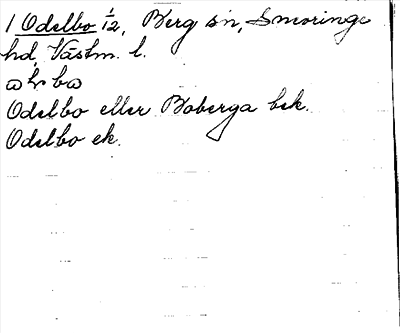 1 Odelbo 1/2, Berg sn, Snevringe
hd, Västm. l.
Odelbo eller Boberga bek.
Odelbo ek.